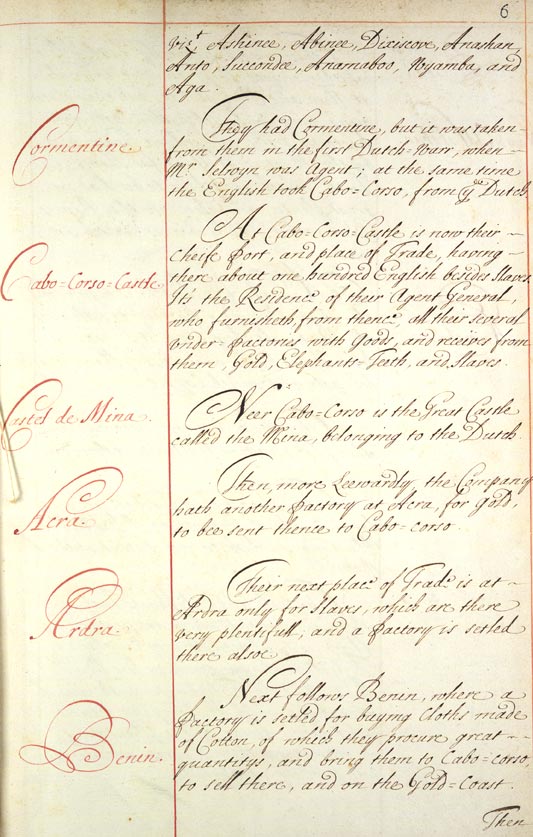 6
vizt, Ashinee, Abinee, Dixiscove, Anashan,
Anto, Succondee, Anamaboo, Wyamba, and
Aga.
Cormentine.
They had Cormentine, but it was taken
from them in the first Dutch=Warr, when
Mr Selwyn was Agent; at the same time
the English took Cabo=Corso, from ye Dutch.
Cabo=Corso=Castle.
At Cabo=Corso=Castle is now their
cheife Port, and place of Trade, having
there about one hundred English besides Slaves.
Its the Residence of their Agent General,
who furnisheth, from thence, all their several
vnder=factories with Goods, and receives from
them, Gold, Elephants=Teeth, and, Slaves.
Castel de Mina.
Neer Cabo=Corso is the Great Castle
called the Mina, belonging to the Dutch.
Acra.
Then, more Leewardly, the Company
hath another factory at Acra, for Gold,
to bee sent thence to Cabo=corso.
Ardra.
Their next place of Trade is at
Ardra only for Slaves, which are there
very plentifull, and a factory is setled
there alsoe.
Benin.
Next follows Benin, where a
factory is setled for buying Cloths made
of Cotton, of which they procure great
quantitys, and bring them to Cabo=corso,
to sell there, and on the Gold=Coast.
Then